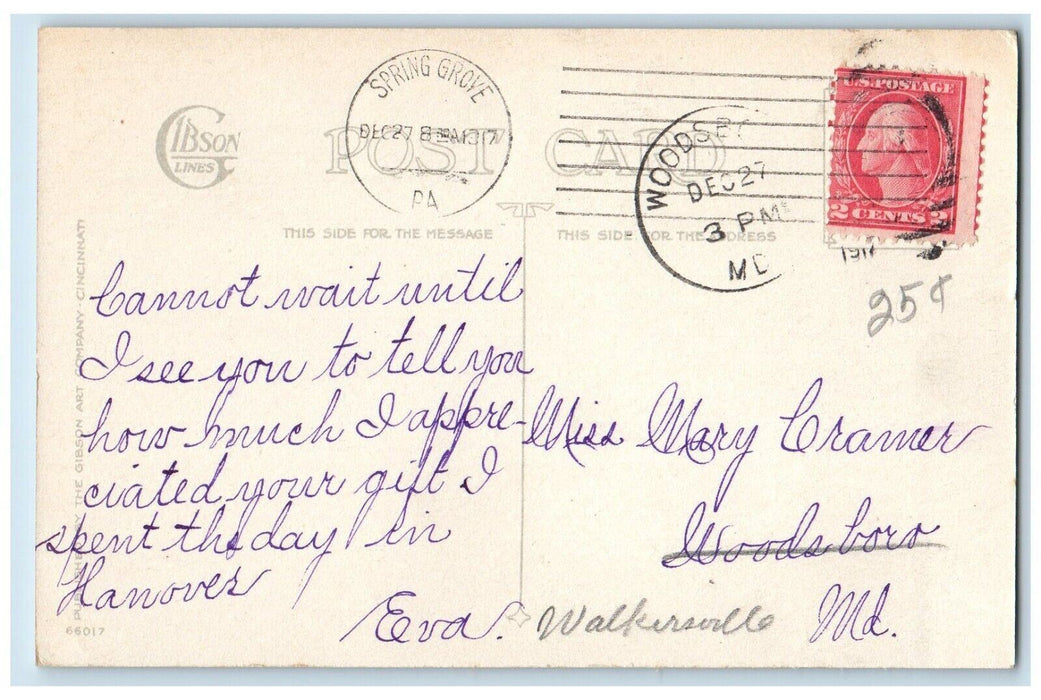 GIBSON
LINES
POST CARD
SPRING GROVE
DEC27
1917
PA.
WOODSB
DEC27
3 PM
MD
1917
U.S. POSTAGE
2 CENTS 2
THIS SIDE FOR THE MESSAGE
THIS SIDE FOR THE ADDRESS
25¢
Cannot wait until
I see you to tell you
how much I appre-
ciated your gift I
spent the day in
Hanover
Eva.
Miss Mary Cramer
Woodsboro
Walkersville Md.
PUBLISHED BY THE GIBSON ART COMPANY · CINCINNATI
66017